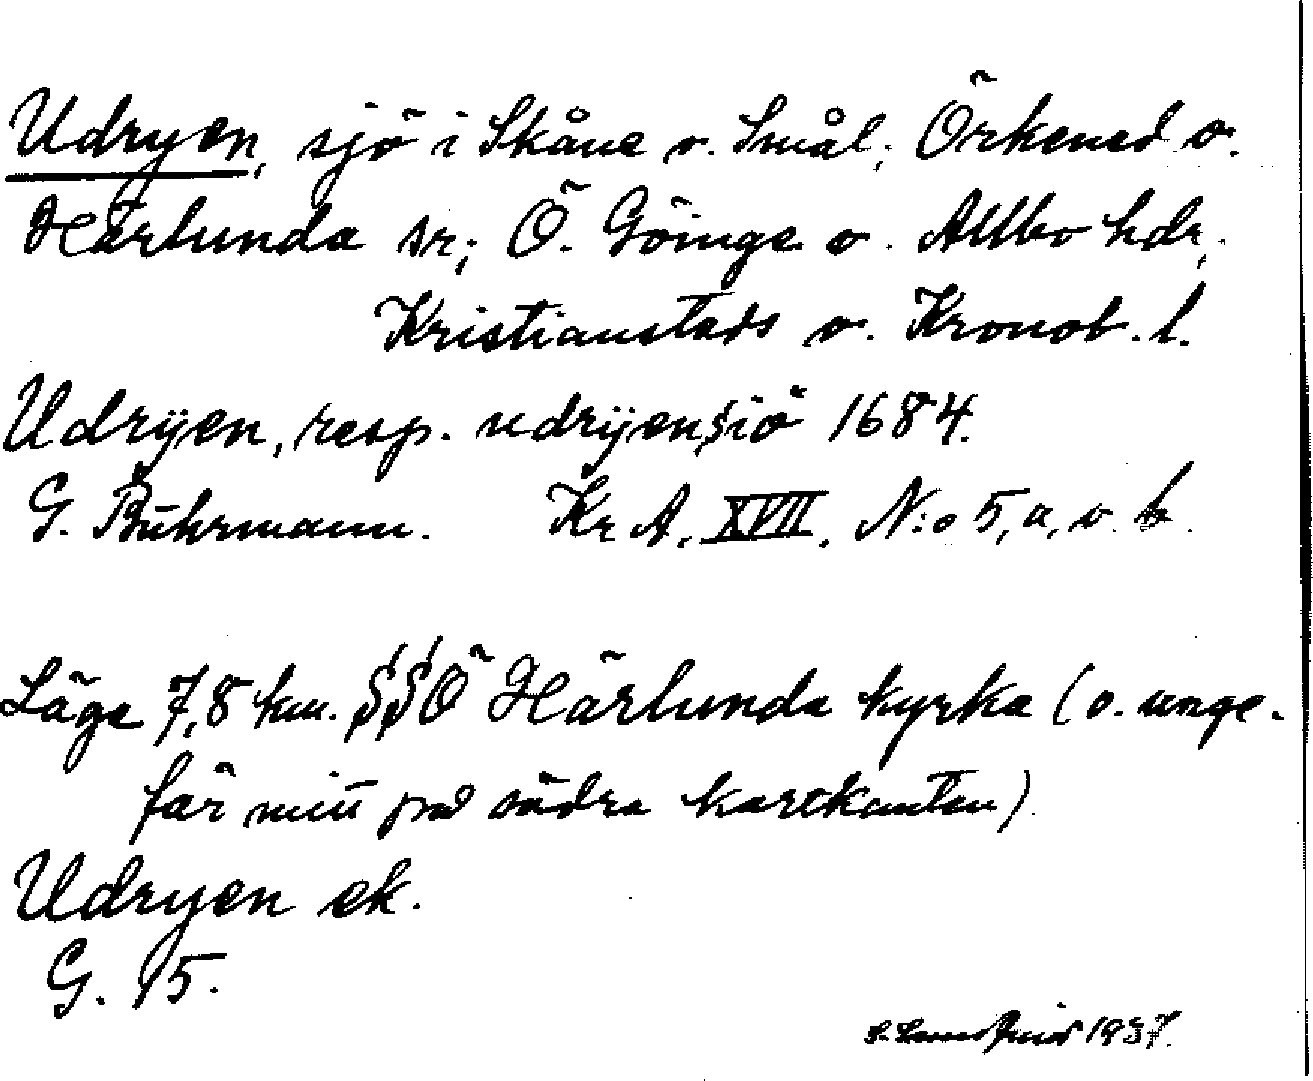 Udryen, sjö i Skåne o. Smål; Örkened o.
Härlunda sr; Ö. Göinge o. Allbo hdr,
Kristianstads o. Kronob. l.
Udrÿen, resp. udrÿensiö 1684.
G. Buhrmann. Kr A. XVII. N:o 5, a, o. b.
Läge 7,8 km. SSÖ Härlunda kyrka (o. unge-
fär mitt på södra kartkanten)
Udryen ek.
G. 15.
1937.